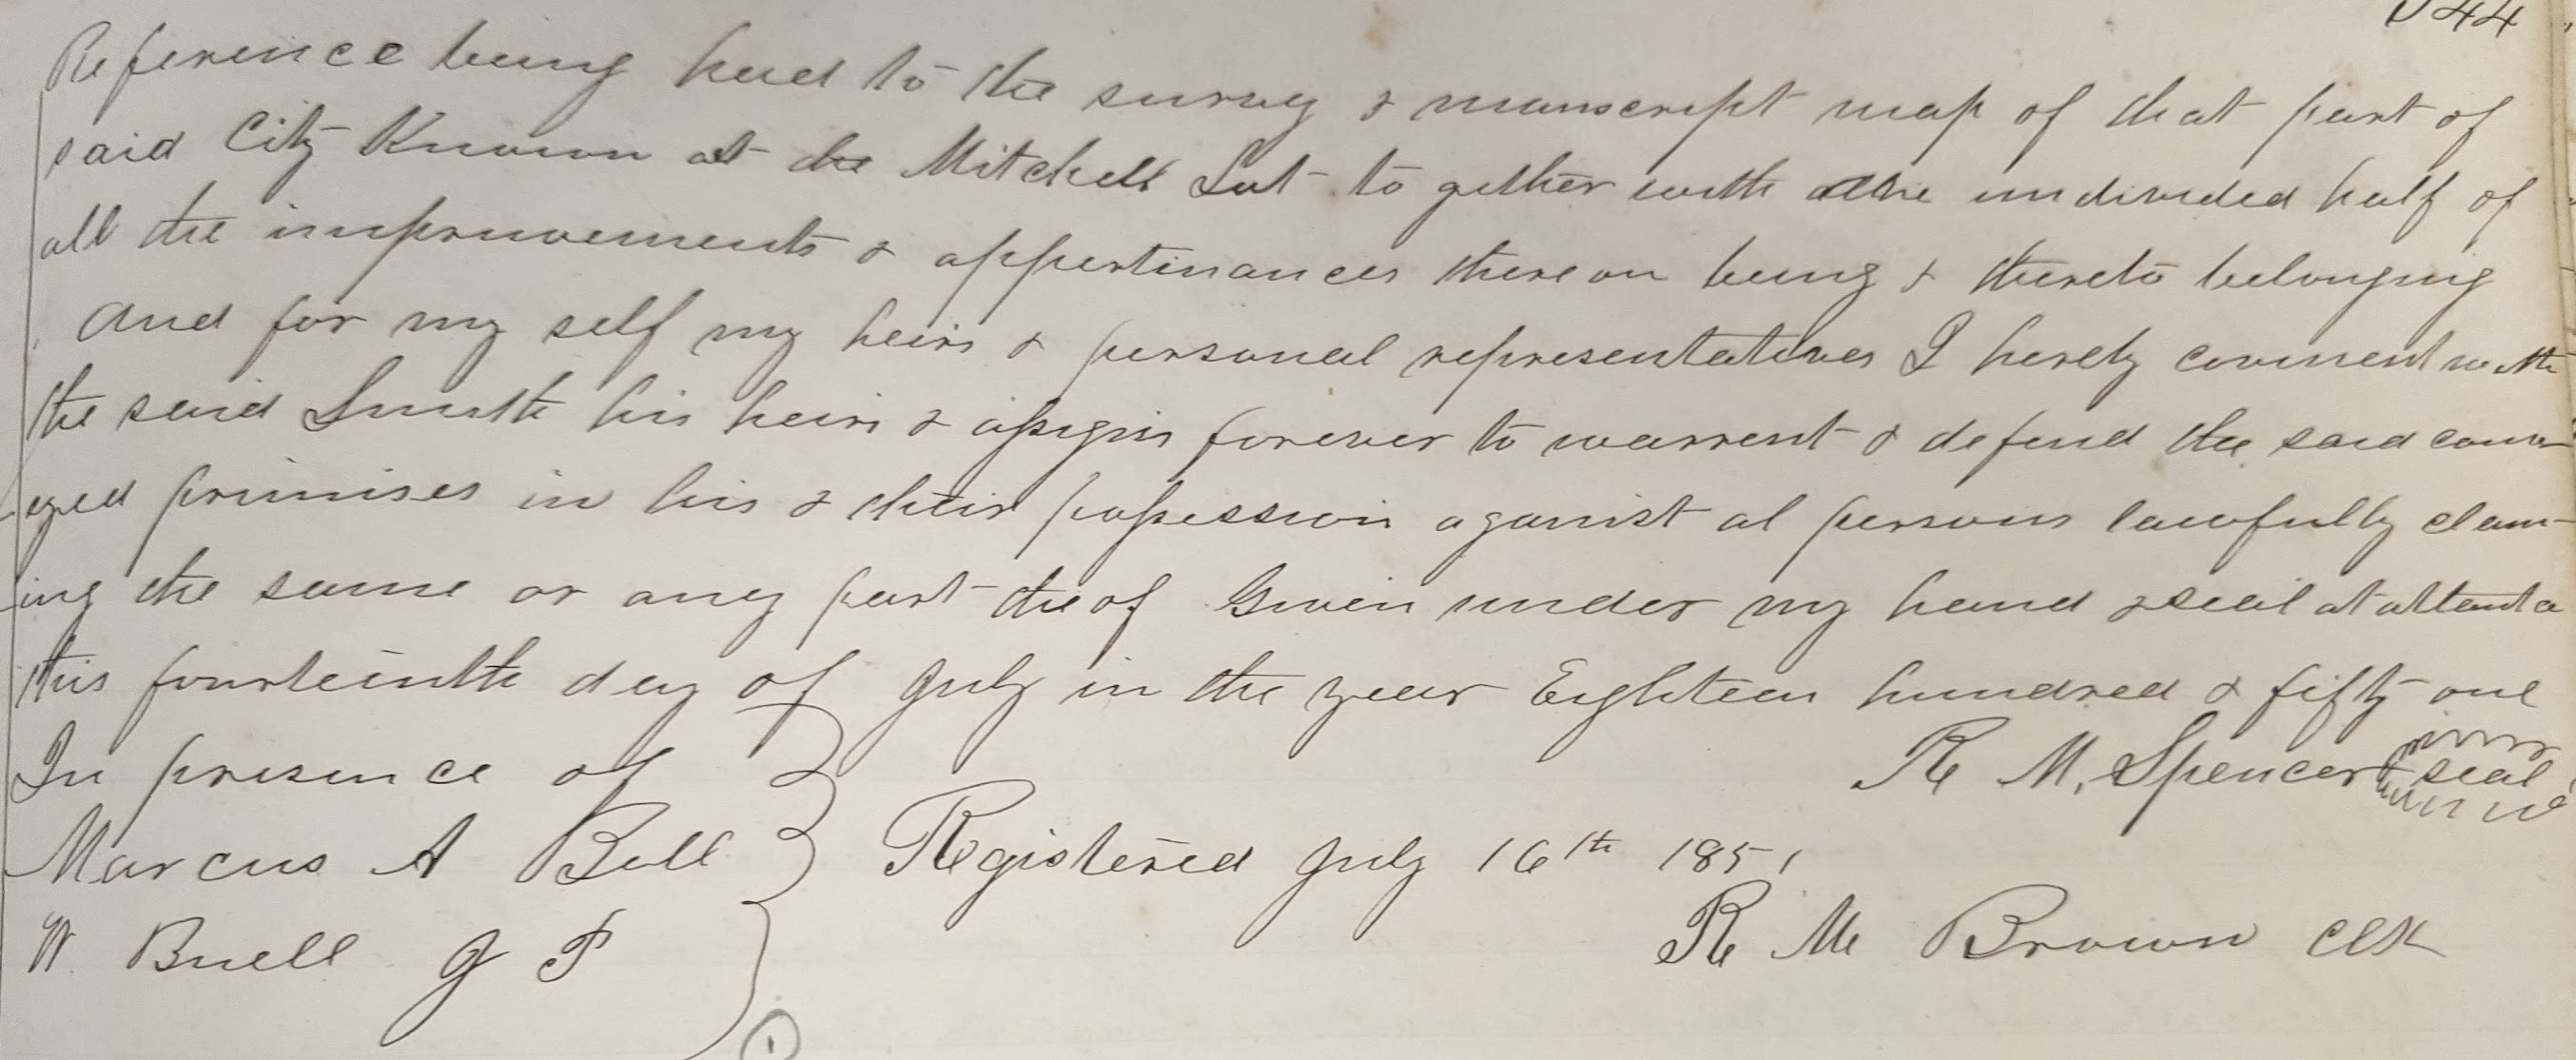 44
Reference being had to the survey & manuscript map of that part of
said City Known at the Mitchell Lot to gether with the undivided half of
all the improuvements & appertinances there on being & thereto belonging
And for my self my heirs & personal representatives I herely covenent with
the said Smith his heirs & assigns forever to warrent & defend the said conv
eyed primises in his & their possession aganist al persons lawfully clam-
ing the same or any part the of Given under my hand & seal at atlanta
this fourteinth day of July in the year Eighteen hundred & fifty one
In presence of R M. Spencer seal
Marcus A Bell Registered July 16th 1851
W. Buell J P R M Brown Clk